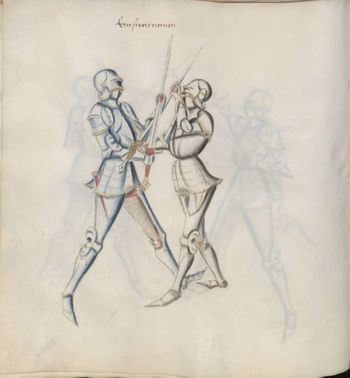 Ein swert nemen